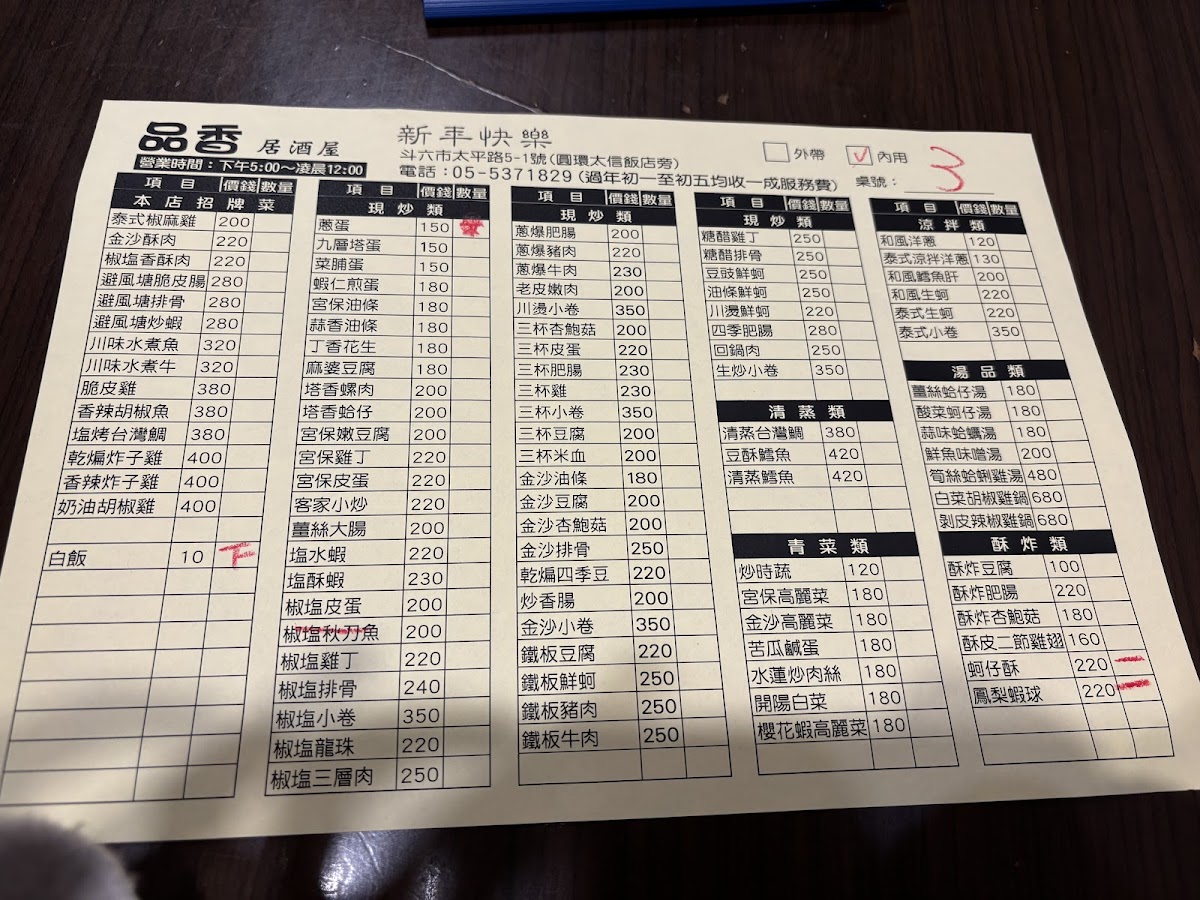 品香 居酒屋
營業時間：下午5:00～凌晨12:00
新年快樂
斗六市太平路5-1號(圓環太信飯店旁)
電話：05-5371829 (過年初一至初五均收一成服務費)
外帶 ✓ 內用
桌號： 3
項目 價錢 數量
本店招牌菜
泰式椒麻雞 200
金沙酥肉 220
椒塩香酥肉 220
避風塘脆皮腸 280
避風塘排骨 280
避風塘炒蝦 280
川味水煮魚 320
川味水煮牛 320
脆皮雞 380
香辣胡椒魚 380
塩烤台灣鯛 380
乾煸炸子雞 400
香辣炸子雞 400
奶油胡椒雞 400
白飯 10 下
項目 價錢 數量
現炒類
蔥蛋 150
九層塔蛋 150
菜脯蛋 150
蝦仁煎蛋 180
宮保油條 180
蒜香油條 180
丁香花生 180
麻婆豆腐 180
塔香螺肉 200
塔香蛤仔 200
宮保嫩豆腐 200
宮保雞丁 220
宮保皮蛋 220
客家小炒 220
薑絲大腸 200
塩水蝦 220
塩酥蝦 230
椒塩皮蛋 200
椒塩秋刀魚 200
椒塩雞丁 220
椒塩排骨 240
椒塩小卷 350
椒塩龍珠 220
椒塩三層肉 250
項目 價錢 數量
現炒類
蔥爆肥腸 200
蔥爆豬肉 220
蔥爆牛肉 230
老皮嫩肉 200
川燙小卷 350
三杯杏鮑菇 200
三杯皮蛋 220
三杯肥腸 230
三杯雞 230
三杯小卷 350
三杯豆腐 200
三杯米血 200
金沙油條 180
金沙豆腐 200
金沙杏鮑菇 200
金沙排骨 250
乾煸四季豆 220
炒香腸 200
金沙小卷 350
鐵板豆腐 220
鐵板鮮蚵 250
鐵板豬肉 250
鐵板牛肉 250
項目 價錢 數量
現炒類
糖醋雞丁 250
糖醋排骨 250
豆豉鮮蚵 250
油條鮮蚵 250
川燙鮮蚵 220
四季肥腸 280
回鍋肉 250
生炒小卷 350
清蒸類
清蒸台灣鯛 380
豆酥鱈魚 420
清蒸鱈魚 420
青菜類
炒時蔬 120
宮保高麗菜 180
金沙高麗菜 180
苦瓜鹹蛋 180
水蓮炒肉絲 180
開陽白菜 180
櫻花蝦高麗菜 180
項目 價錢 數量
涼拌類
和風洋蔥 120
泰式涼拌洋蔥 130
和風鱈魚肝 200
和風生蚵 220
泰式生蚵 220
泰式小卷 350
湯品類
薑絲蛤仔湯 180
酸菜蚵仔湯 180
蒜味蛤蠣湯 180
鮮魚味噌湯 200
筍絲蛤蜊雞湯 480
白菜胡椒雞鍋 680
剝皮辣椒雞鍋 680
酥炸類
酥炸豆腐 100
酥炸肥腸 220
酥炸杏鮑菇 180
酥皮二節雞翅 160
蚵仔酥 220 一
鳳梨蝦球 220 一